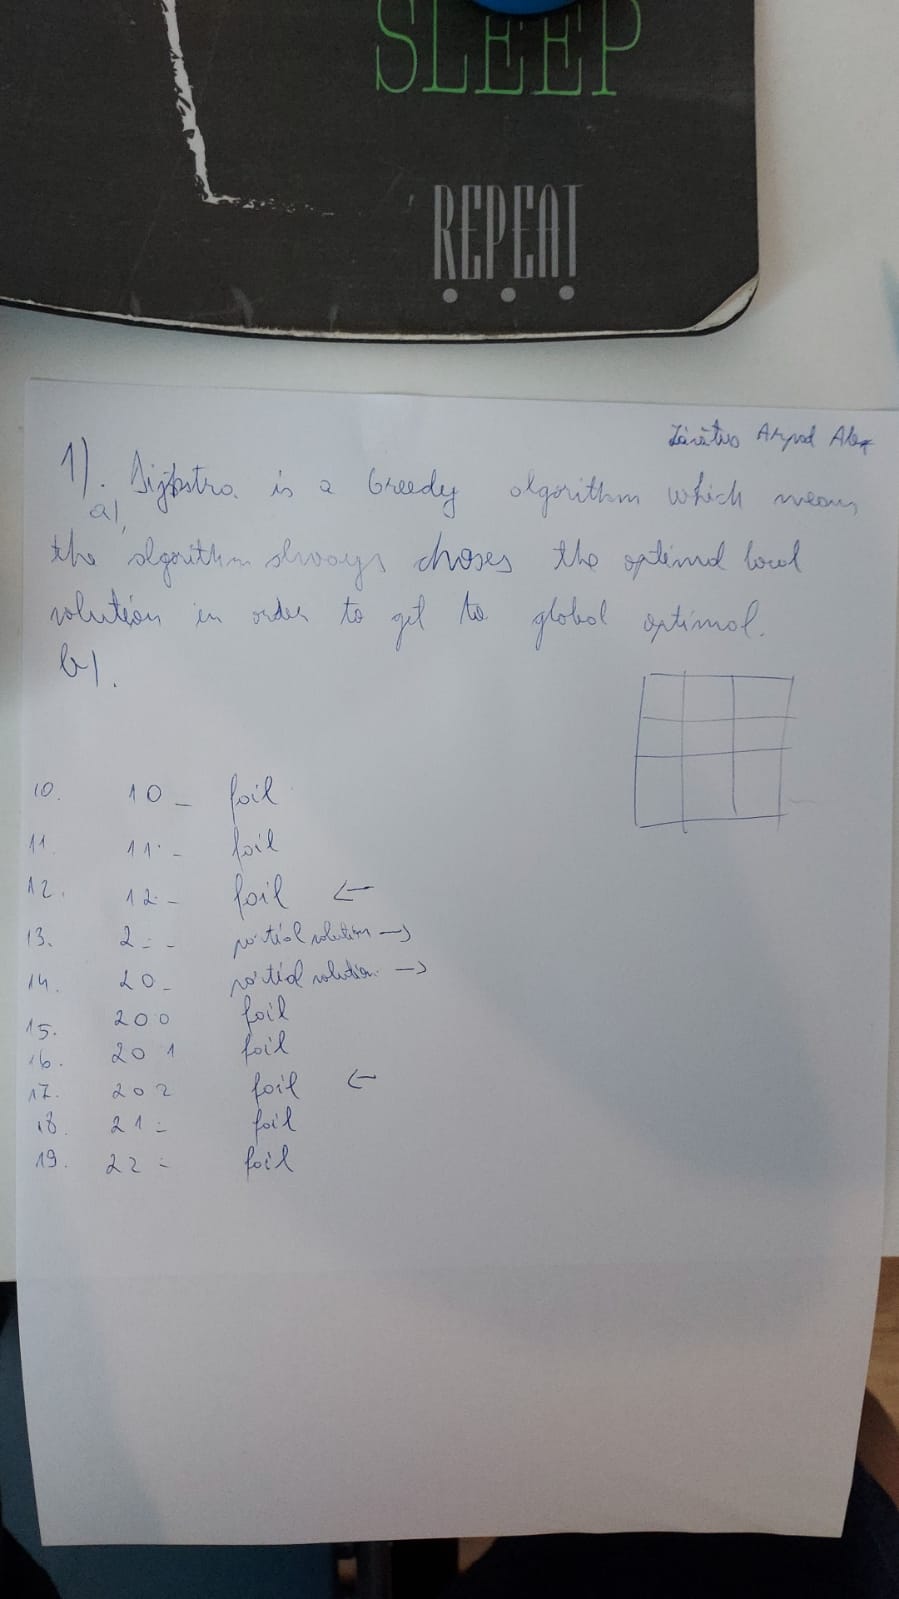 SLEEP
REPEAT
Arpad Alex
1). Dijkstra is a Greedy algorithm which means
a).
the algorithm always choses the optimal local
solution in order to get to global optimal.
b).
10. 10_ foil
11. 11- foil
12. 12- foil ←
13. 2-- partial solution →
14. 20_ partial solution →
15. 200 foil
16. 201 foil
17. 202 foil ←
18. 21- foil
19. 22- foil